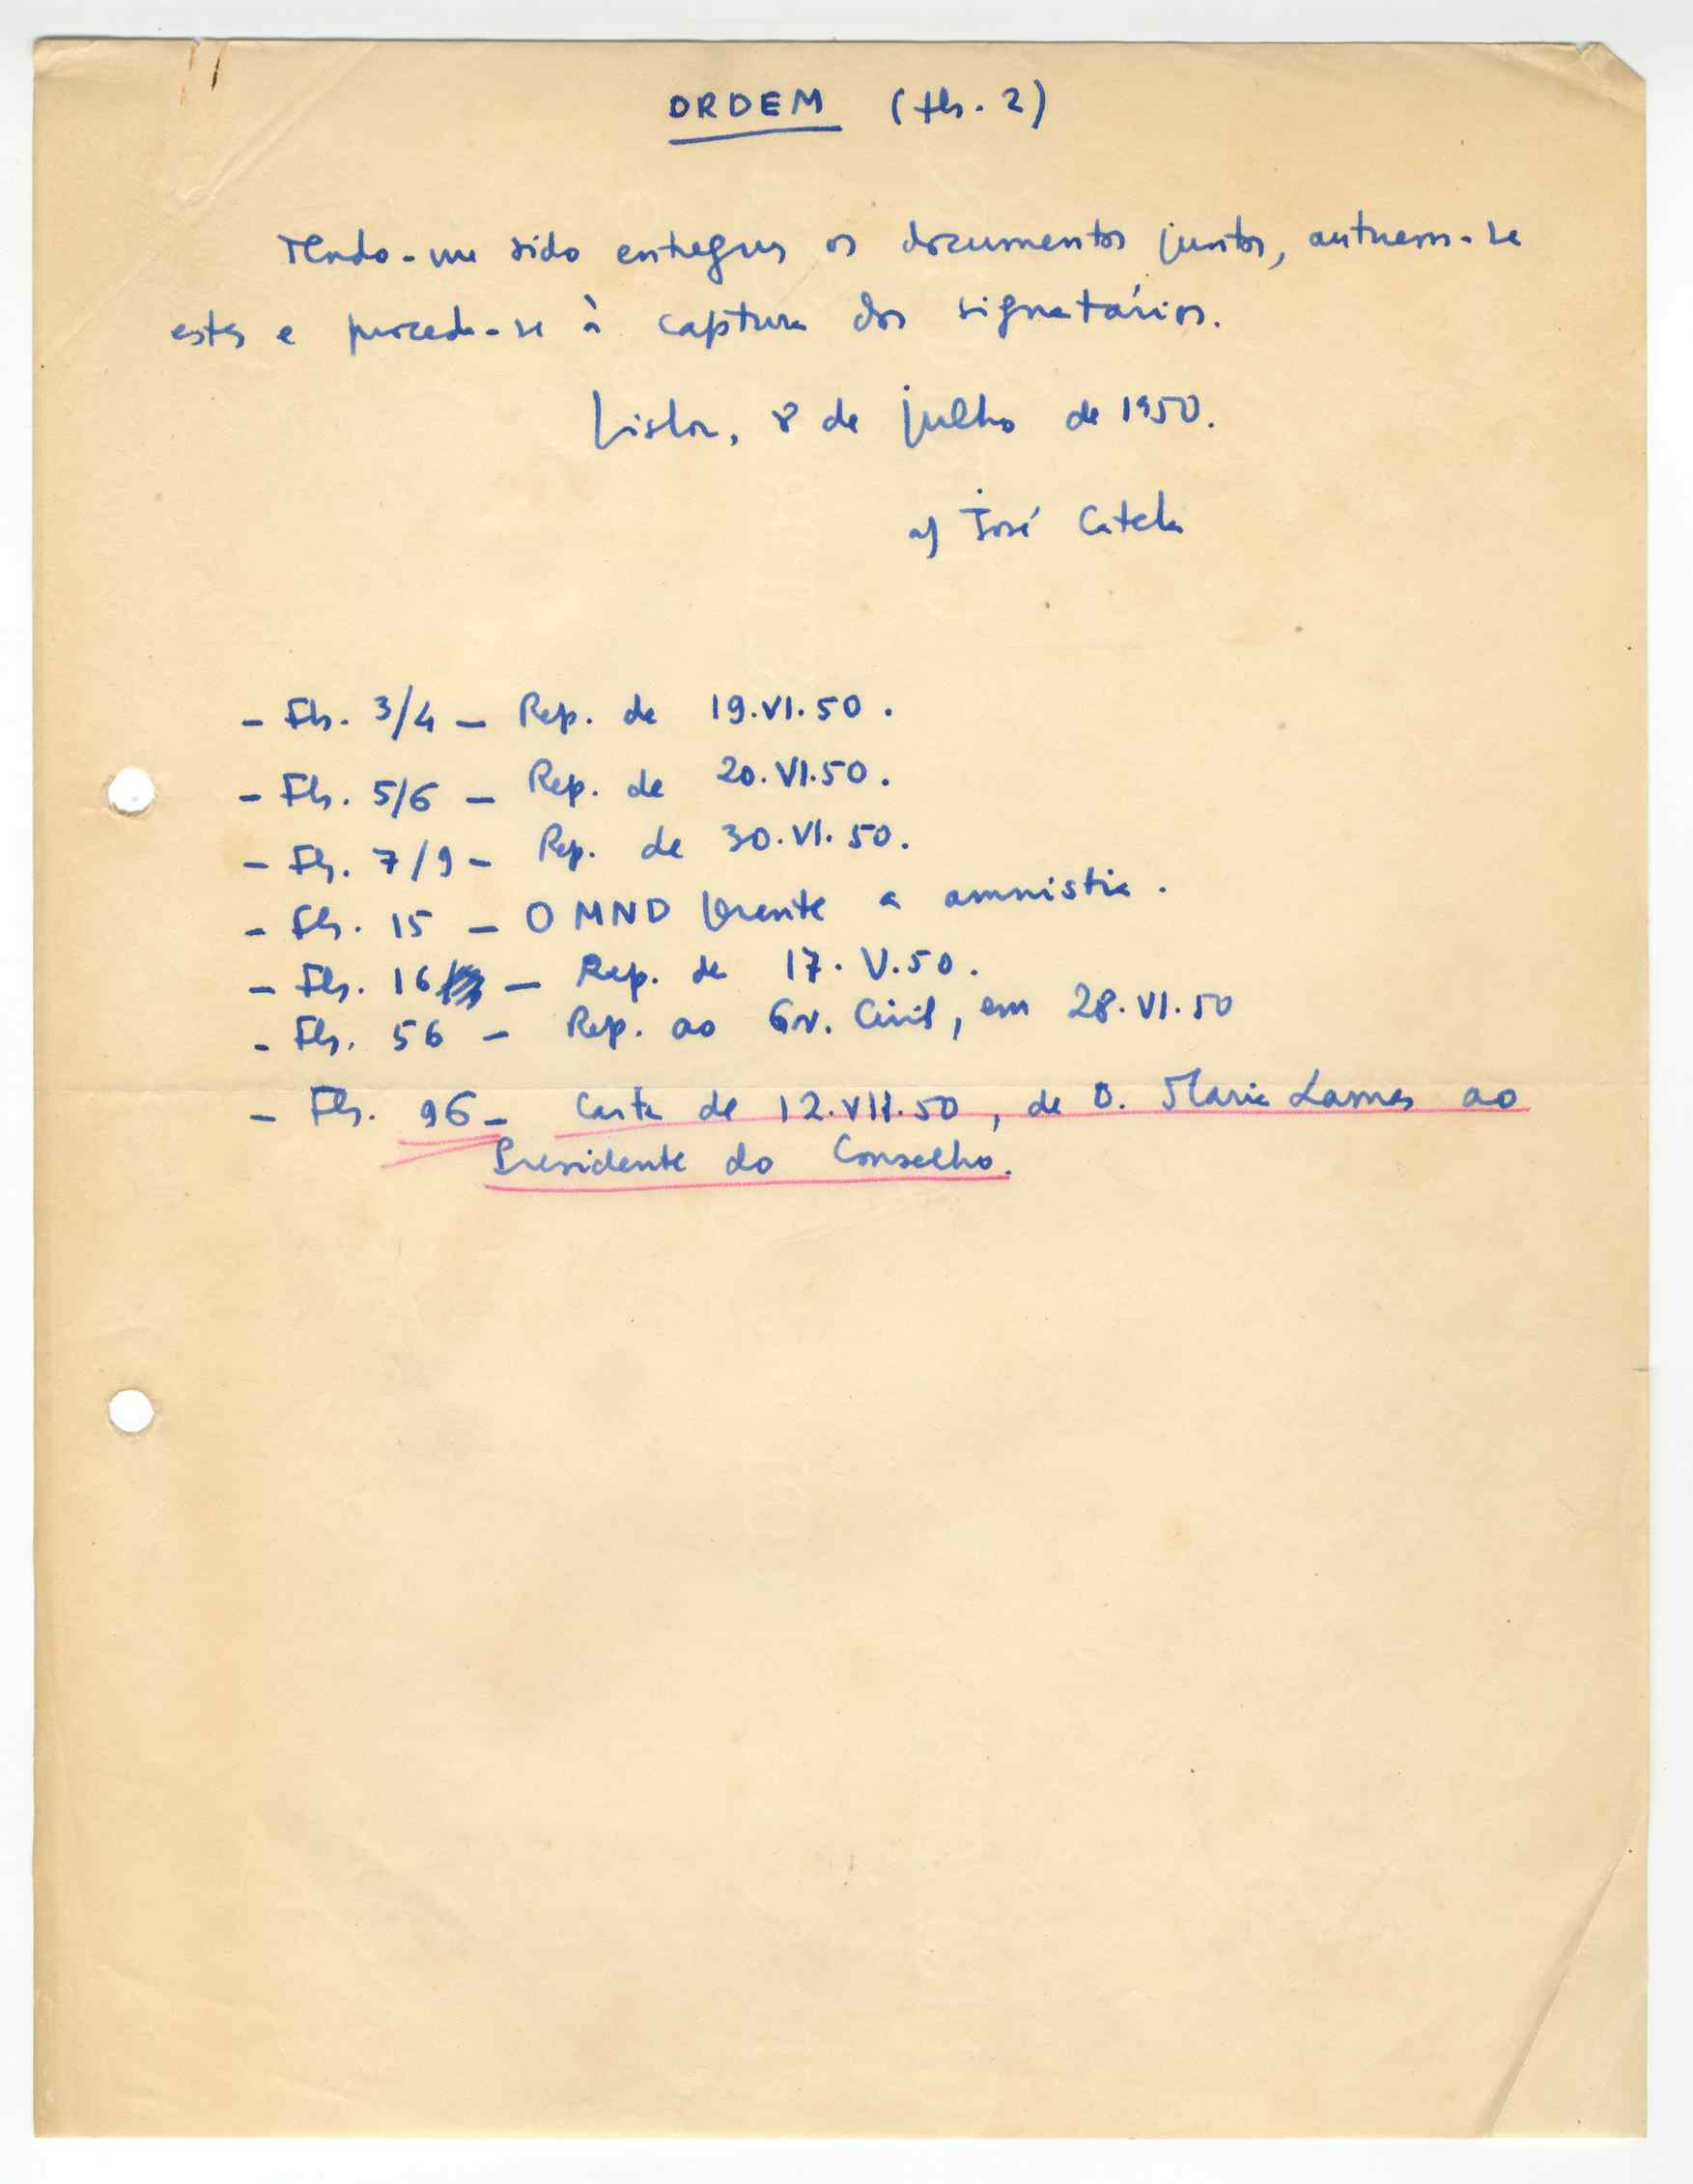 ORDEM (fls. 2)
Tendo-me sido entregues os documentos juntos, autuem-se
estes e proceda-se à captura dos signatários.
Lisboa, 8 de julho de 1950.
a) José Catela
- Fls. 3/4 - Rep. de 19.VI.50.
- Fls. 5/6 - Rep. de 20.VI.50.
- Fls. 7/9 - Rep. de 30.VI.50.
- Fls. 15 - O MND perante a amnistia.
- Fls. 16 - Rep. de 17.V.50.
- Fls. 56 - Rep. ao Gov. Civil, em 28.VI.50
- Fls. 96 - Carta de 12.VII.50, de D. Maria Lamas ao
Presidente do Conselho.